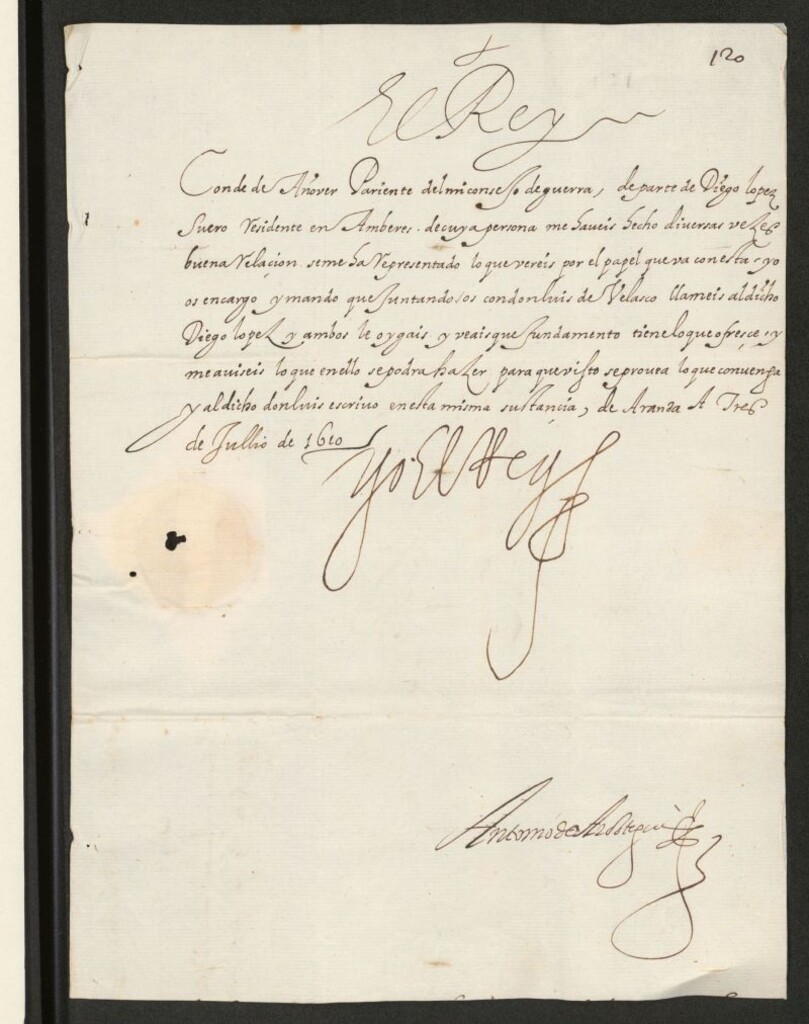 120
El Rey
Conde de Añover Pariente del mi consejo de guerra, de parte de Diego lopez
suero residente en Amberes. de cuya persona me haveis hecho diversas vezes
buena relacion. se me ha representado lo que vereis por el papel que va con esta. yo
os encargo y mando que juntandoos con don luis de Velasco llameis al dicho
Diego lopez y ambos le oygais. y veais que fundamento tiene lo que ofresce. y
me aviseis lo que en ello se podra hazer para que visto se provea lo que convenga
y al dicho don luis escrivo en esta misma sustancia, de Aranda A Tres
de Jullio de 1610
Yo El Rey
Antonio de Arostegui